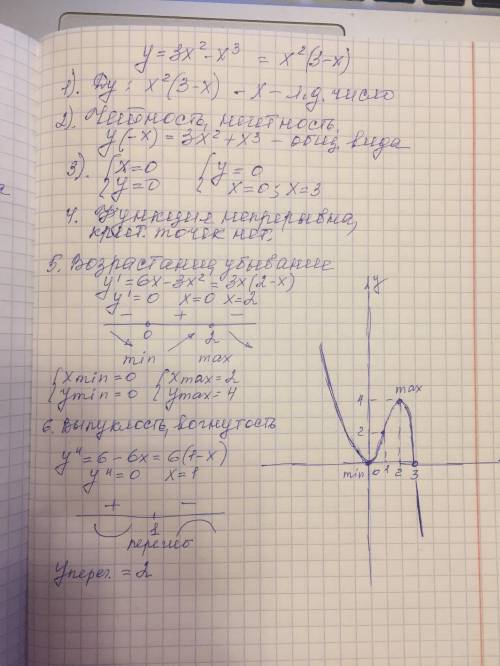 y = 3x² - x³ = x²(3-x)
1). Dy: x²(3-x) - x - люб. число
2). Четность, нечетность.
y(-x) = 3x² + x³ - общ. вида
3). { x=0 { y=0
{ y=0 x=0; x=3
4. Функция непрерывна,
крит. точек нет.
5. Возрастание, убывание
y' = 6x - 3x² = 3x(2-x)
y' = 0 x=0 x=2
- + -
0 2
min max
{ x min = 0 { x max = 2
{ y min = 0 { y max = 4
6. Выпуклость, вогнутость
y" = 6 - 6x = 6(1-x)
y" = 0 x=1
+ -
1
перегиб
y перег. = 2
y
max
4
2
min 0 1 2 3